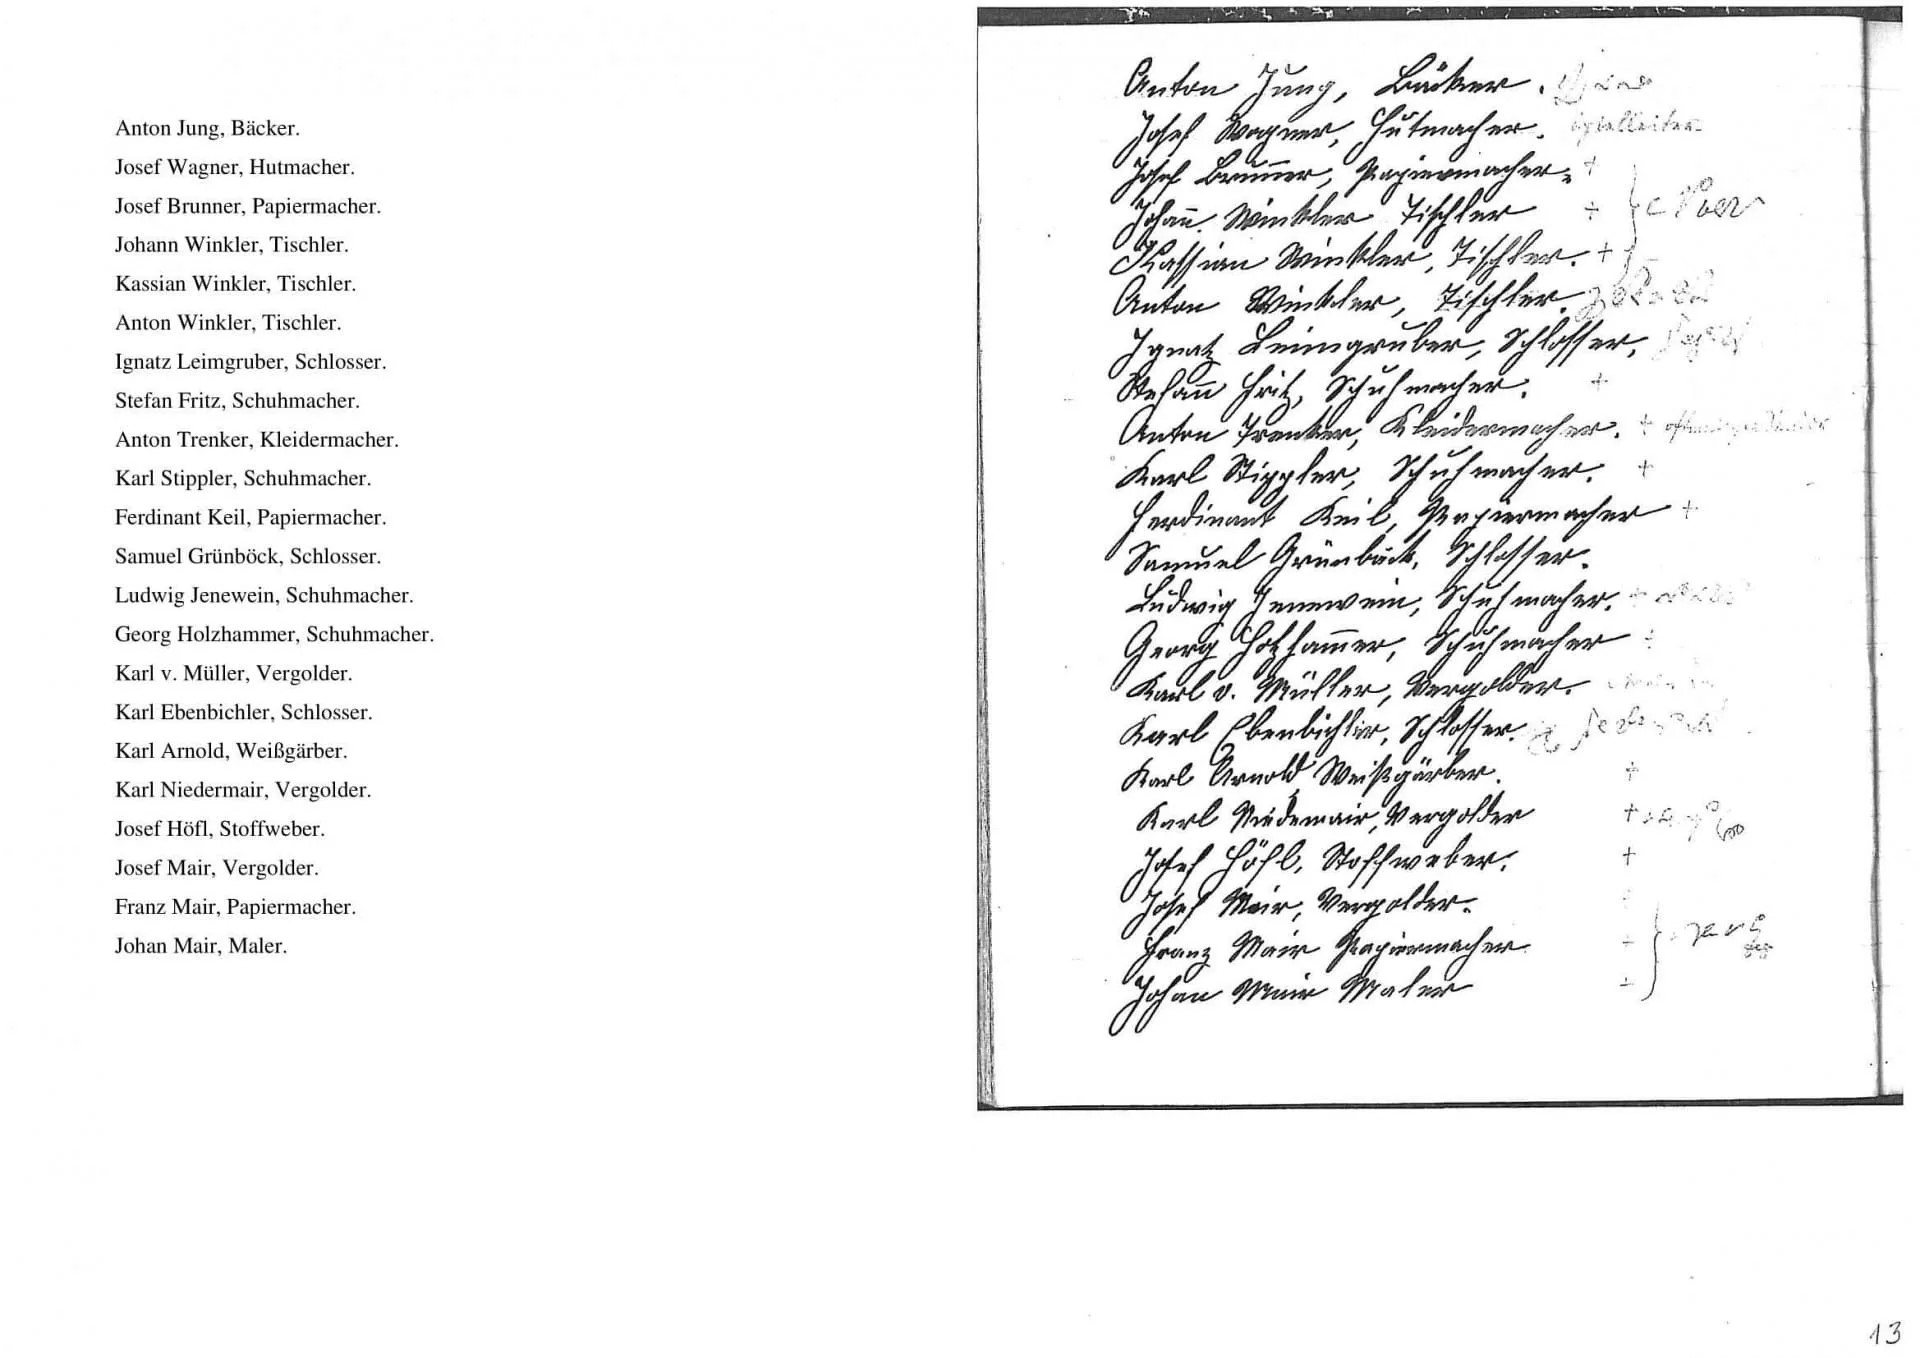 Anton Jung, Bäcker.
Josef Wagner, Hutmacher.
Josef Brunner, Papiermacher.
Johann Winkler, Tischler.
Kassian Winkler, Tischler.
Anton Winkler, Tischler.
Ignatz Leimgruber, Schlosser.
Stefan Fritz, Schuhmacher.
Anton Trenker, Kleidermacher.
Karl Stippler, Schuhmacher.
Ferdinant Keil, Papiermacher.
Samuel Grünböck, Schlosser.
Ludwig Jenewein, Schuhmacher.
Georg Holzhammer, Schuhmacher.
Karl v. Müller, Vergolder.
Karl Ebenbichler, Schlosser.
Karl Arnold, Weißgärber.
Karl Niedermair, Vergolder.
Josef Höfl, Stoffweber.
Josef Mair, Vergolder.
Franz Mair, Papiermacher.
Johan Mair, Maler.
Anton Jung, Bäcker.
Josef Wagner, Hutmacher.
Josef Brunner, Papiermacher. +
Johann Winkler Tischler +
Kassian Winkler, Tischler. +
Anton Winkler, Tischler.
Ignatz Leimgruber, Schlosser.
Stefann Fritz, Schuhmacher. +
Anton Trenker, Kleidermacher. +
Karl Stippler, Schuhmacher. +
Ferdinant Keil, Papiermacher +
Samuel Grünböck, Schlosser.
Ludwig Jenewein, Schuhmacher. +
Georg Holzhammer, Schuhmacher +
Karl v. Müller, Vergolder.
Karl Ebenbichler, Schlosser.
Karl Arnold Weißgärber. +
Karl Niedermair, Vergolder +
Josef Höfl, Stoffweber. +
Josef Mair, Vergolder.
Franz Mair Papiermacher +
Johan Mair Maler +
13